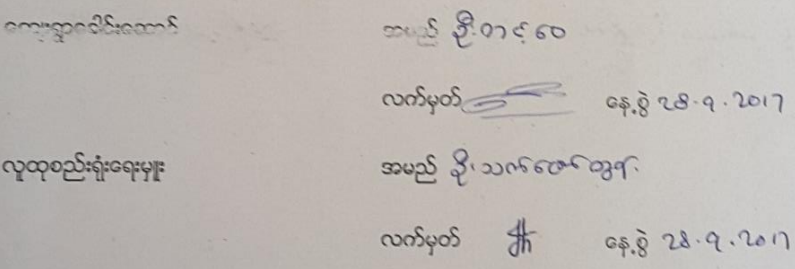 ကျေးရွာခေါင်းဆောင် အမည် ဦးတင့်ဝေ
လက်မှတ် နေ့စွဲ 28.9.2017
လူထုစည်းရုံးရေးမှူး အမည် ဦးသက်ဇော်ထွန်း
လက်မှတ် နေ့စွဲ 28.9.2017